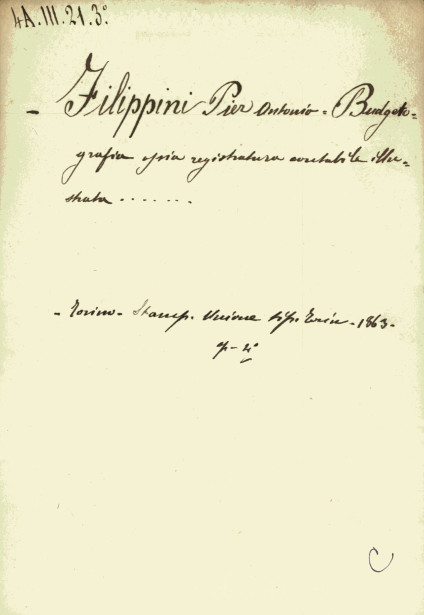 4A.III.21.3°
- Filippini Pier Antonio = Budgeto=
grafia ossia registratura contabile illu=
strata .......
- Torino - Stamp. Unione tip. Torin - 1863 -
4°
C